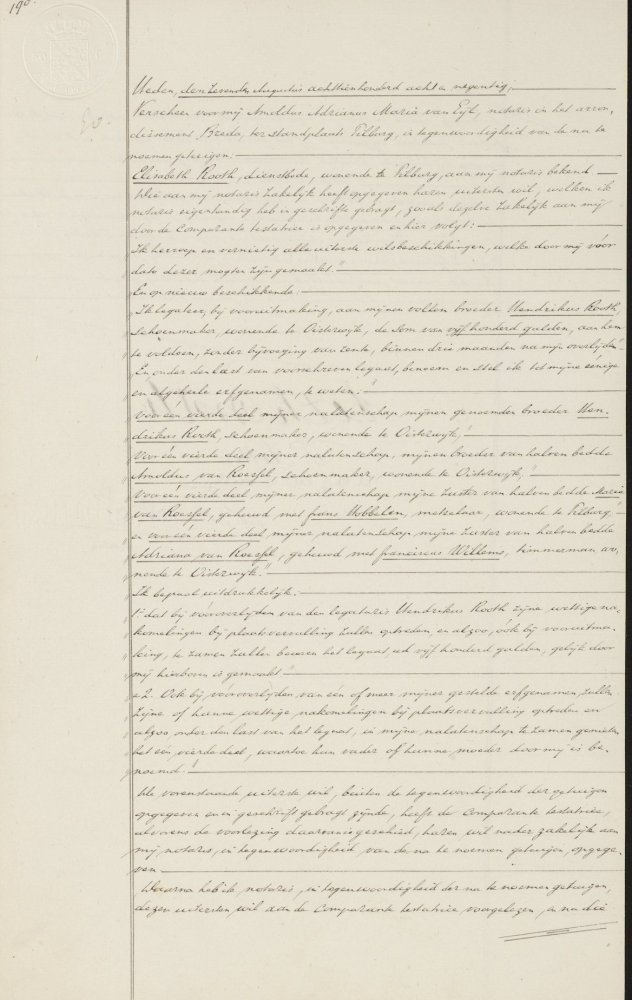 190.
Heden, den zevenden Augustus achttienhonderd acht en negentig,
Verscheen voor mij Arnoldus Adrianus Maria van Eijl, notaris in het arron-
dissement Breda, ter standplaats Tilburg, in tegenwoordigheid van de na te
noemen getuigen:
Elisabeth Rooth, dienstbode, wonende te Tilburg, aan mij notaris bekend
Wie aan mij notaris zakelijk heeft opgegeven haren uitersten wil, welken ik
notaris eigenhandig heb in geschrifte gebragt, zooals dezelve zakelijk aan mij
door de Comparante testatrice is opgegeven en hier volgt:
"Ik herroep en vernietig alle uiterste wilsbeschikkingen, welke door mij vóór
" dato dezer mogten zijn gemaakt."
" En op nieuw beschikkende:
" Ik legateer, bij vooruitmaking, aan mijnen vollen broeder Hendrikus Rooth,
" schoenmaker, wonende te Oisterwijk, de som van vijf honderd gulden, aan hem
" te voldoen, zonder bijvoeging van rente, binnen drie maanden na mijn overlijden.
" En onder den last van voorschreven legaat, benoem en stel ik tot mijne eenige
" en algeheele erfgenamen, te weten:
" voor één vierde deel mijner nalatenschap mijnen genoemden broeder Hen-
" drikus Rooth, schoenmaker, wonende te Oisterwijk,
" voor één vierde deel mijner nalatenschap, mijnen broeder van halven bedde
" Arnoldus van Roessel, schoenmaker, wonende te Oisterwijk,
" voor één vierde deel mijner nalatenschap mijne zuster van halven bedde Maria
" van Roessel, gehuwd met frans Mobbelen, metselaar, wonende te Tilburg,
" en voor één vierde deel mijner nalatenschap mijne zuster van halven bedde
" Adriana van Roessel, gehuwd met franciscus Willems, timmerman wo-
" nende te Oisterwijk."
" Ik bepaal uitdrukkelijk:
" 1º dat bij vooroverlijden van den legataris Hendrikus Rooth zijne wettige na-
" komelingen bij plaatsvervulling zullen optreden en alzoo, óók bij vooruitma-
" king, te zamen zullen beuren het legaat ad vijf honderd gulden, gelijk door
" mij hierboven is gemaakt
" 2. Ook bij vooroverlijden van één of meer mijner gestelde erfgenamen zullen
" zijne of hunne wettige nakomelingen bij plaatsvervulling optreden en
" alzoo, onder den last van het legaat, in mijne nalatenschap te zamen genieten
" het één vierde deel, waartoe hun vader of hunne moeder door mij is be-
" noemd.
De vorenstaande uiterste wil, buiten de tegenwoordigheid der getuigen
opgegeven en in geschrift gebragt zijnde, heeft de Comparante testatrice,
alvorens de voorlezing daarvan is geschied, haren wil nader zakelijk aan
mij, notaris, in tegenwoordigheid van de na te noemen getuigen, opgege-
ven
Waarna heb ik notaris, in tegenwoordigheid der na te noemen getuigen,
dezen uitersten wil aan de Comparante testatrice voorgelezen, en na die